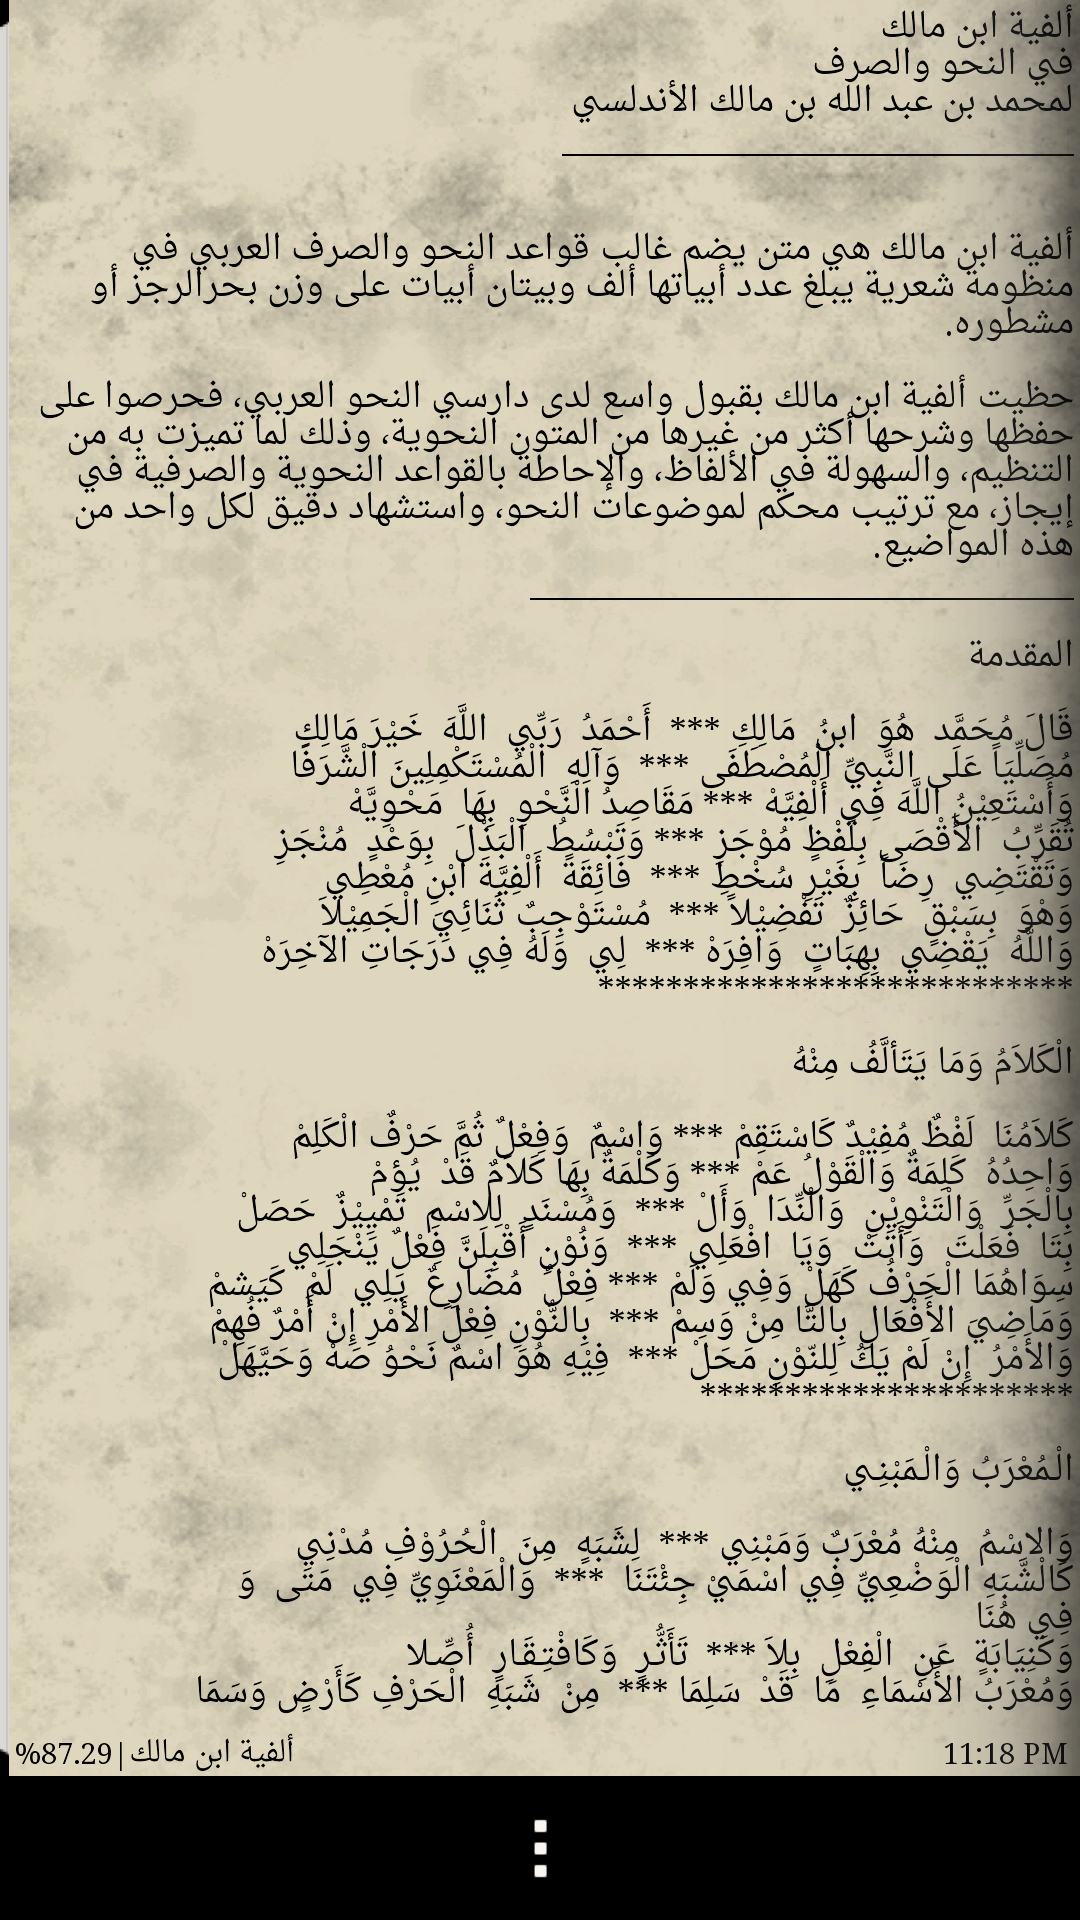 ألفية ابن مالك
في النحو والصرف
لمحمد بن عبد الله بن مالك الأندلسي
ألفية ابن مالك هي متن يضم غالب قواعد النحو والصرف العربي في
منظومة شعرية يبلغ عدد أبياتها ألف وبيتان أبيات على وزن بحرالرجز أو
مشطوره.
حظيت ألفية ابن مالك بقبول واسع لدى دارسي النحو العربي، فحرصوا على
حفظها وشرحها أكثر من غيرها من المتون النحوية، وذلك لما تميزت به من
التنظيم، والسهولة في الألفاظ، والإحاطة بالقواعد النحوية والصرفية في
إيجاز، مع ترتيب محكم لموضوعات النحو، واستشهاد دقيق لكل واحد من
هذه المواضيع.
المقدمة
قَالَ مُحَمَّد هُوَ ابنُ مَالِكِ *** أَحْمَدُ رَبِّي اللَّهَ خَيْرَ مَالِكِ
مُصَلِّيَاً عَلَى النَّبِيِّ الْمُصْطَفَى *** وَآلِهِ الْمُسْتَكْمِلِينَ الْشَّرَفَا
وَأَسْتَعِيْنُ اللَّهَ فِي أَلْفِيَّهْ *** مَقَاصِدُ الْنَّحْوِ بِهَا مَحْوِيَّهْ
تُقَرِّبُ الأَقْصَى بِلَفْظٍ مُوْجَزِ *** وَتَبْسُطُ الْبَذْلَ بِوَعْدٍ مُنْجَزِ
وَتَقْتَضِي رِضَاً بِغَيْرِ سُخْطِ *** فَائِقَةً أَلْفِيَّةَ ابْنِ مُعْطِي
وَهْوَ بِسَبْقٍ حَائِزٌ تَفْضِيْلاً *** مُسْتَوْجِبٌ ثَنَائِيَ الْجَمِيْلاَ
وَاللَّهُ يَقْضِي بِهِبَاتٍ وَافِرَهْ *** لِي وَلَهُ فِي دَرَجَاتِ الآخِرَهْ
****************************
الْكَلاَمُ وَمَا يَتَألَّفُ مِنْهُ
كَلاَمُنَا لَفْظٌ مُفِيْدٌ كَاسْتَقِمْ *** وَاسْمٌ وَفِعْلٌ ثُمَّ حَرْفٌ الْكَلِمْ
وَاحِدُهُ كَلِمَةٌ وَالْقَوْلُ عَمْ *** وَكَلْمَةٌ بِهَا كَلاَمٌ قَدْ يُؤمْ
بِالْجَرِّ وَالْتَنْوِيْنِ وَالْنِّدَا وَأَلْ *** وَمُسْنَدٍ لِلاسْمِ تَمْيِيْزٌ حَصَلْ
بِتَا فَعَلْتَ وَأَتَتْ وَيَا افْعَلِي *** وَنُوْنِ أَقْبِلَنَّ فِعْلٌ يَنْجَلِي
سِوَاهُمَا الْحَرْفُ كَهَلْ وَفِي وَلَمْ *** فِعْلٌ مُضَارِعٌ يَلِي لَمْ كَيَشمْ
وَمَاضِيَ الأَفْعَالِ بِالتَّا مِنْ وَسِمْ *** بِالنُّوْنِ فِعْلَ الأَمْرِ إِنْ أَمْرٌ فُهِمْ
وَالأَمْرُ إِنْ لَمْ يَكُ لِلنّوْنِ مَحَلْ *** فِيْهِ هُوَ اسْمٌ نَحْوُ صَهْ وَحَيَّهَلْ
**********************
الْمُعْرَبُ وَالْمَبْنِي
وَالاِسْمُ مِنْهُ مُعْرَبٌ وَمَبْنِي *** لِشَبَهٍ مِنَ الْحُرُوْفِ مُدْنِي
كَالْشَّبَهِ الْوَضْعِيِّ فِي اسْمَيْ جِئْتَنَا *** وَالْمَعْنَوِيِّ فِي مَتَى وَ
فِي هُنَا
وَكَنِيَابَةٍ عَنِ الْفِعْلِ بِلاَ *** تَأَثُّرٍ وَكَافْتِقَارٍ أُصِّلا
وَمُعْرَبُ الأَسْمَاءِ مَا قَدْ سَلِمَا *** مِنْ شَبَهِ الْحَرْفِ كَأَرْضٍ وَسَمَا
11:18 PM ألفية ابن مالك|87.29%